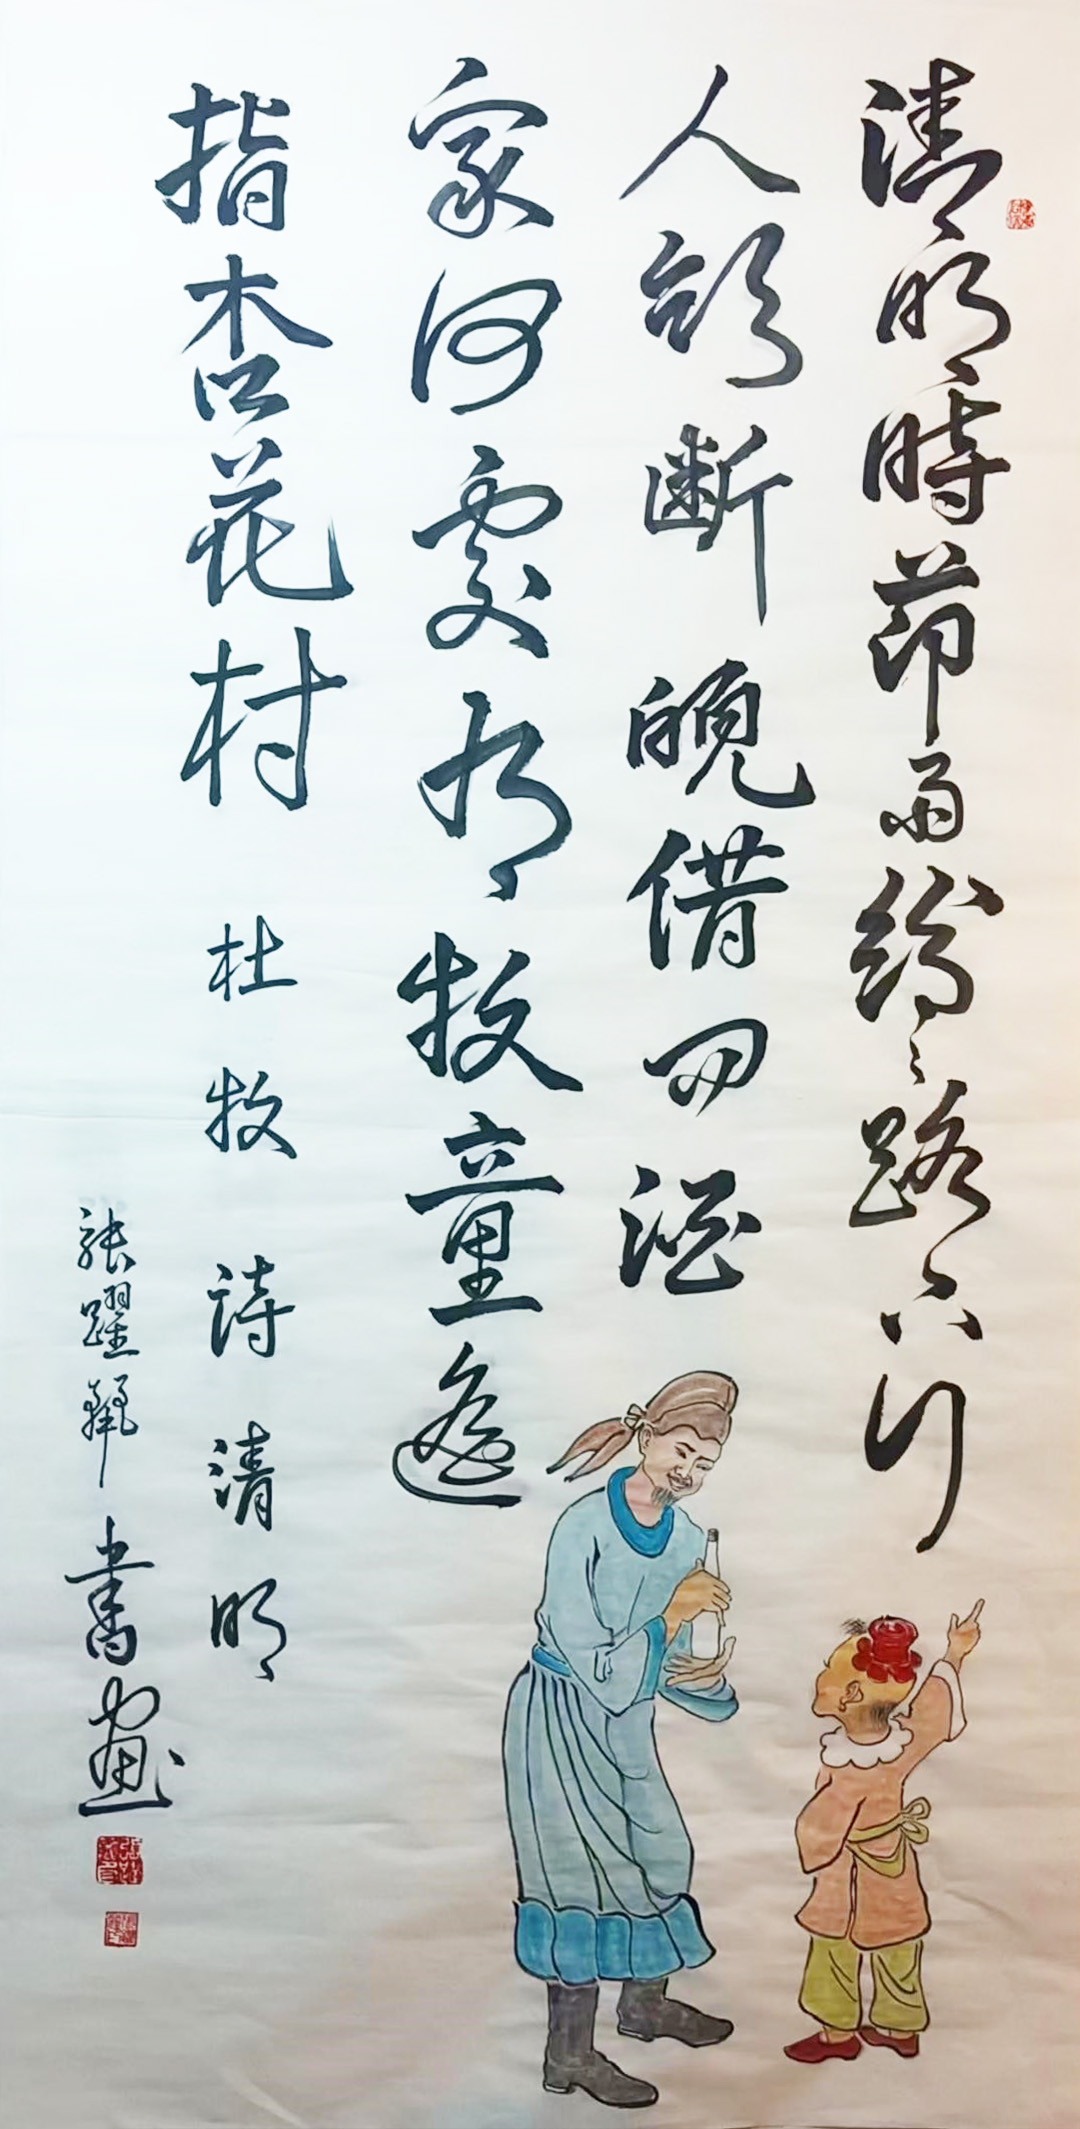 清明時節雨紛々路上行
人欲断魂借问酒
家何處有牧童遥
指杏花村 杜牧 詩 清明
張躍 書畫